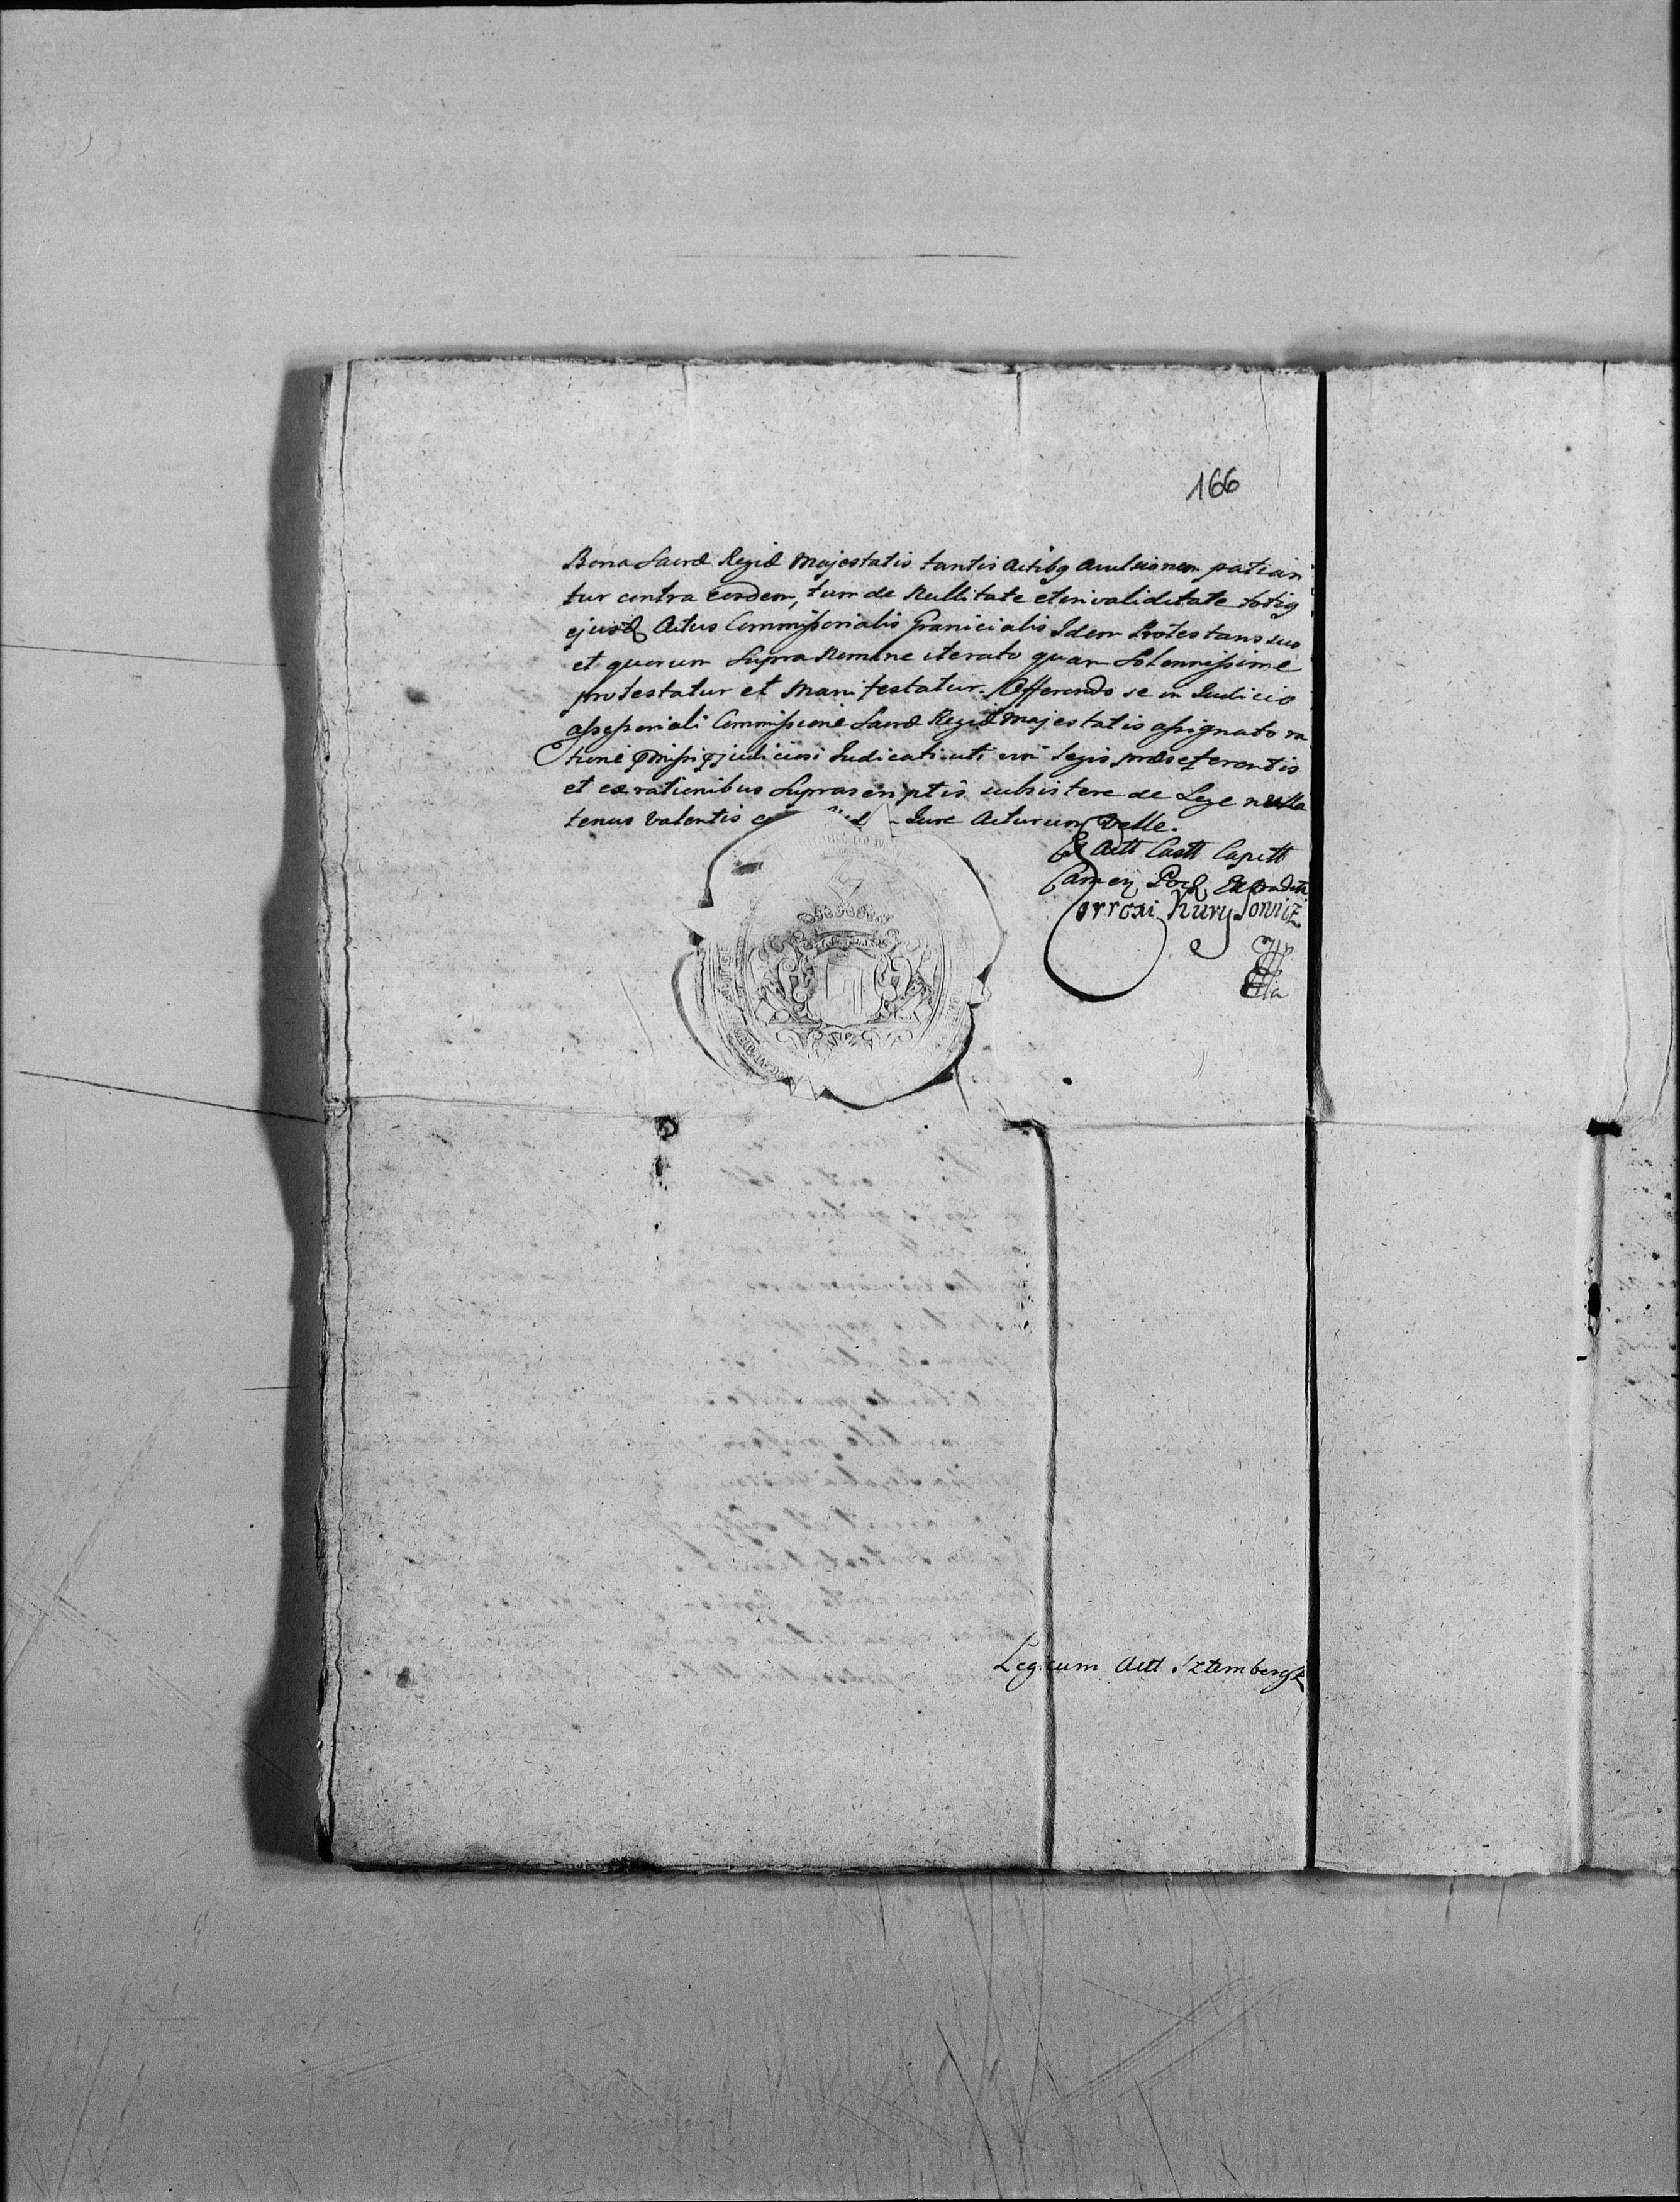 166
Bona Sacræ Regiæ Majestatis tantis Actibq Avulsionem patian
tur contra eosdem, tum de Nullitate et invaliditate totiq
ejusd Actus Commissorialis Granicialis Idem Protestans suo
et quorum Supra Nomine iterato quam Solennissime
protestatur et Manifestatur. Offerendo se in Iudicio
assessoriali Commissione Sacræ Regiæ Majestatis assignato ra
tione judiciosi Iudicati uti vim legis
et ex rationibus Suprascriptis subsistere de Lege nulla
tenus valentis Iure Acturum Velle.
Ex Actt Castt Capitt
Camen Pod Extradit
Legi cum Actt Sztembergk